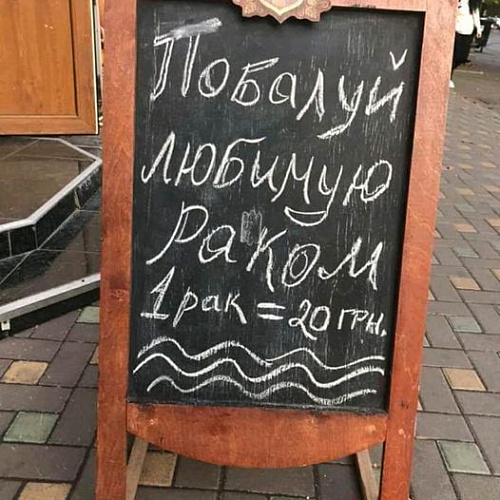 Побалуй
любимую
Раком
1 рак = 20 грн.